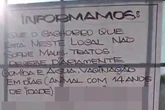 INFORMAMOS:
QUE O CACHORRO QUE
VIVE NESTE LOCAL NÃO
SOFRE MAUS-TRATOS
RECEBE DIARIAMENTE
COMIDA E ÁGUA, VACINAÇÃO
EM DIAS (ANIMAL COM 14 ANOS
DE IDADE)